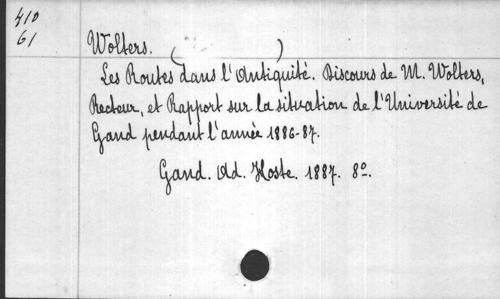 410
61
Wolters. ( )
Les Routes dans l'Antiquité. Discours de M. Wolters,
Recteur, et Rapport sur la situation de l'Université de
Gand pendant l'année 1886-87.
Gand. Ad. Hoste. 1887. 8º.